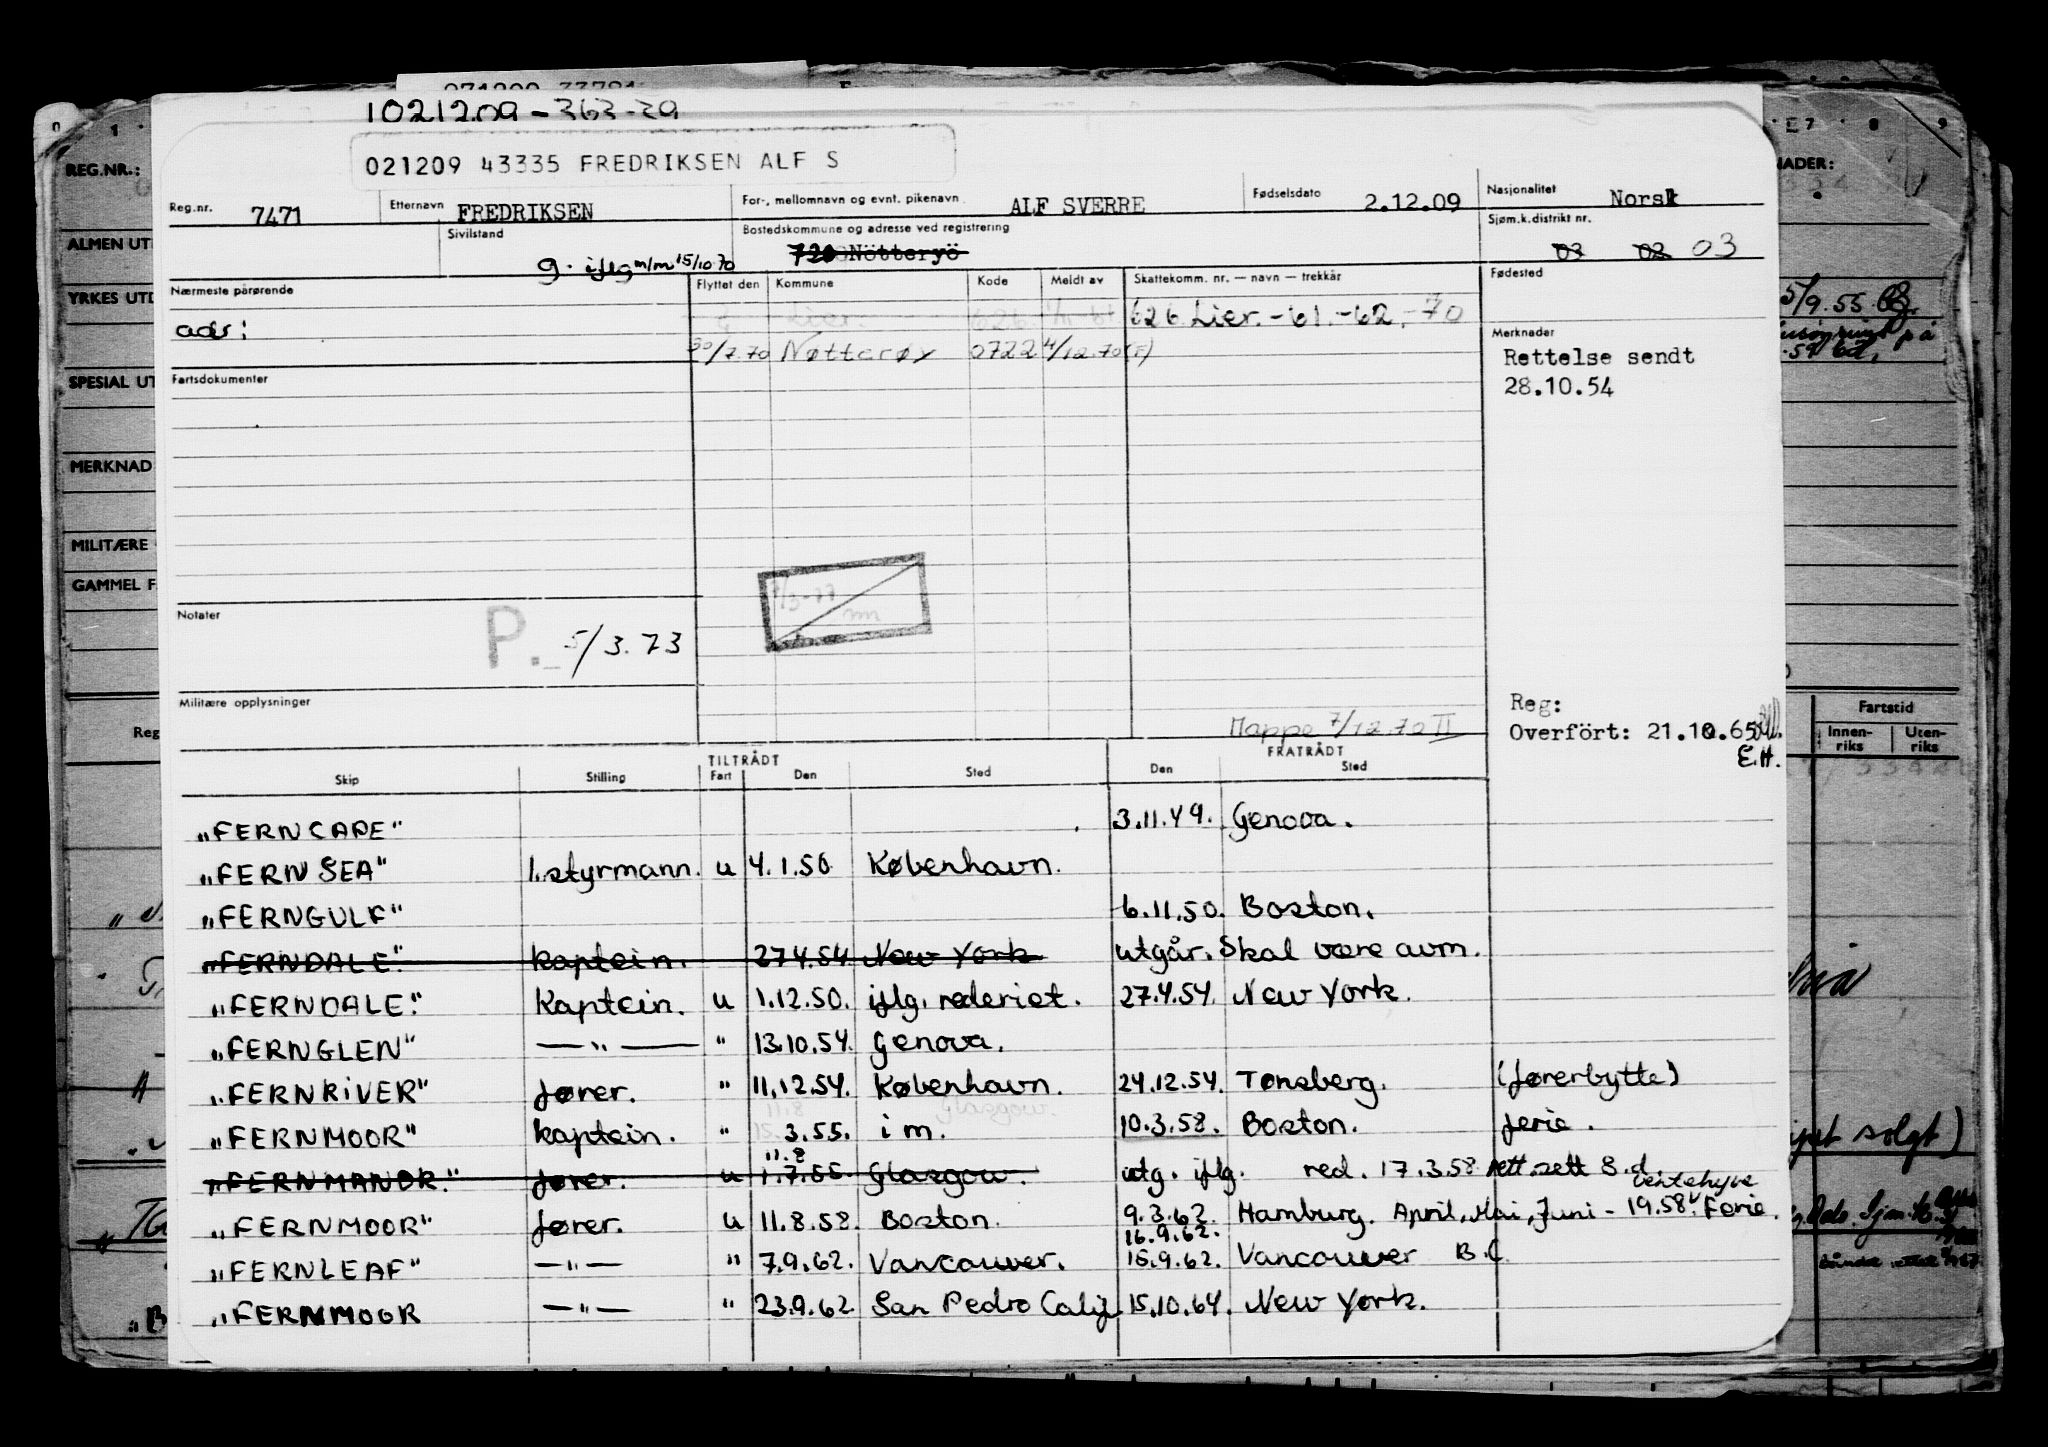 1021209-363-39
021209 43335 FREDRIKSEN ALF S
Reg.nr. 7471 Etternavn FREDRIKSEN For-, mellomnavn og evnt. pikenavn ALF SVERRE Fødselsdato 2.12.09 Nasjonalitet Norsk
Sivilstand g. iflg m/m 15/10 70 Bostedskommune og adresse ved registrering Nötteryö Sjøm.k.distrikt nr. 03 02 03
Nærmeste pårørende Flyttet den Kommune Kode Meldt av Skattekomm. nr. — navn — trekkår Fødested
adr: Lier. 626 626 Lier. -61. -62. -70
30/7.70 Nøtterøy 0722 4/12.70 (F)
Merknader
Rettelse sendt
28.10.54
Fartsdokumenter
Notater
P. 5/3.73
Militære opplysninger
Mappe 7/12.70 II
Reg:
Overfört: 21.10.65
E.H.
TILTRÅDT FRATRÅDT
Skip Stilling Fart Den Sted Den Sted
„FERNCAPE" 3.11.49. Genova.
„FERN SEA" 1.styrmann. u 4.1.50 København.
„FERNGULF" 6.11.50. Boston.
„FERNDALE." kaptein. 27.4.54 New York utgår. Skal være avm.
„FERNDALE." Kaptein. u 1.12.50. iflg. rederiet. 27.4.54. New York.
„FERNGLEN" — „ — " 13.10.54. Genova.
„FERNRIVER" fører. " 11.12.54. København. 24.12.54. Tønsberg. (førerbytte)
„FERNMOOR" kaptein. " 3.55. i m. 10.3.58. Boston. ferie.
11.8
„FERNMANOR." fører. u 1.7.55. Glasgow. utg. iflg. red. 17.3.58 rett. sett S.d.
ventehyre
„FERNMOOR" fører. u 11.8.58. Boston. 9.3.62. Hamburg. April, Mai, Juni - 19.58. Ferie.
16.9.62.
„FERNLEAF" — „ — " 7.9.62. Vancouver. 15.9.62. Vancouver B.C
„FERNMOOR — „ — " 23.9.62 San Pedro Calif 15.10.64. New York.
REG.NR.:
ALMEN UT
YRKES UTD
SPESIAL UT
MERKNAD
MILITÆRE
GAMMEL F
Reg
NADER:
5/9.55
Fartstid
Innen-riks Uten-riks
solgt)